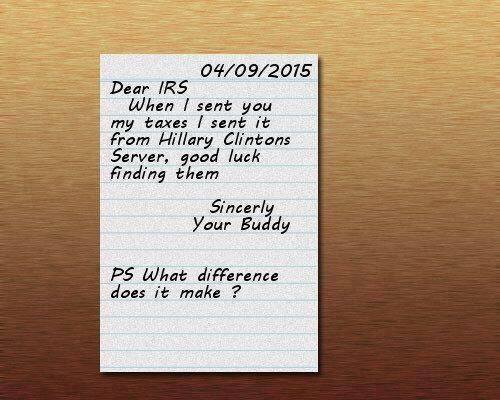 04/09/2015
Dear IRS
When I sent you
my taxes I sent it
from Hillary Clintons
Server, good luck
finding them
Sincerly
Your Buddy
PS What difference
does it make ?